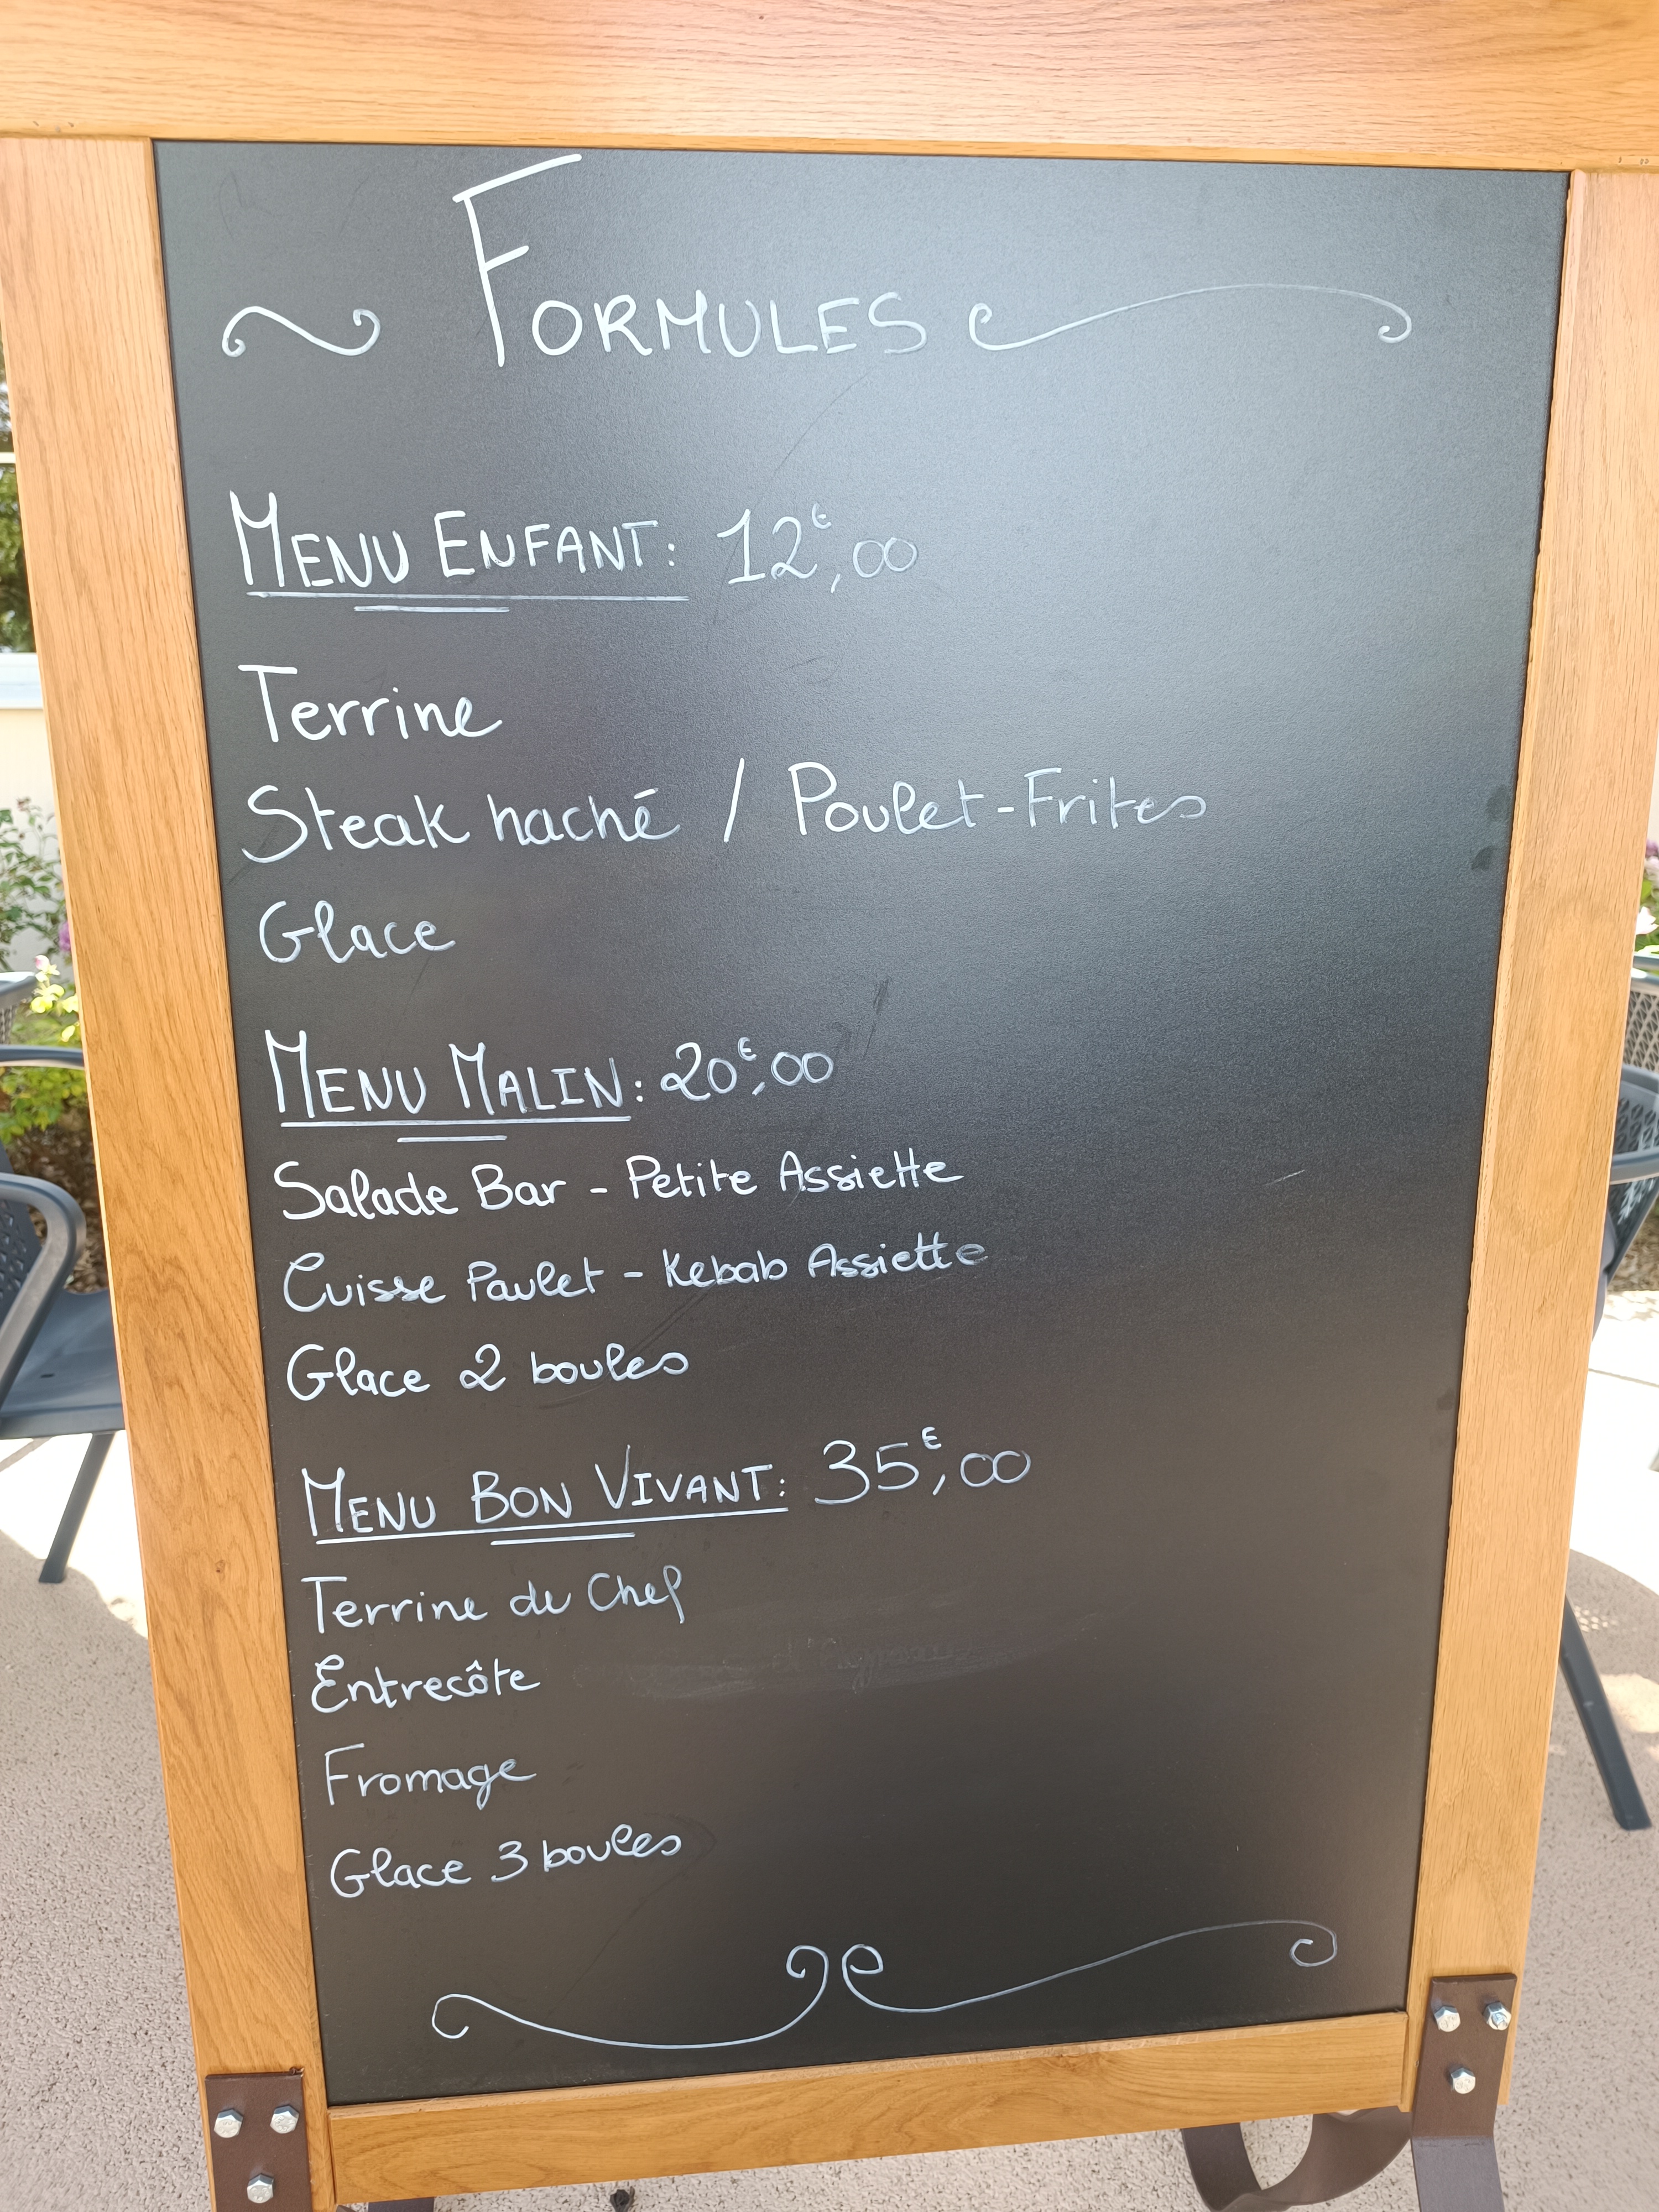 FORMULES
MENU ENFANT: 12€,00
Terrine
Steak haché / Poulet-Frites
Glace
MENU MALIN: 20€,00
Salade Bar - Petite Assiette
Cuisse Poulet - Kebab Assiette
Glace 2 boules
MENU BON VIVANT: 35€,00
Terrine du Chef
Entrecôte
Fromage
Glace 3 boules